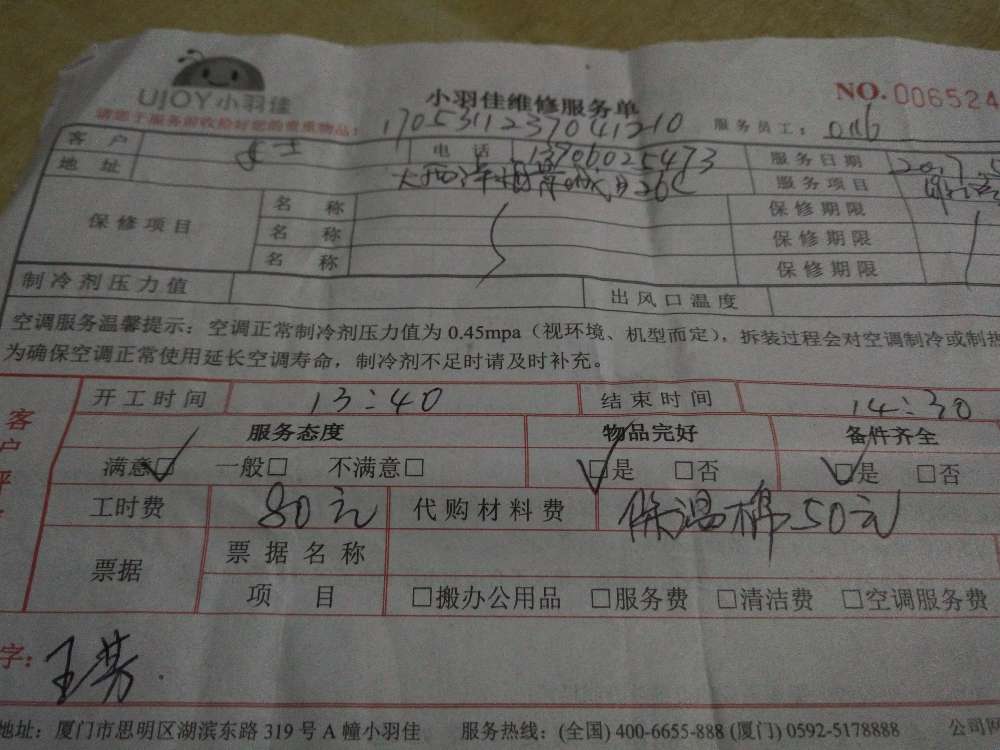 UJOY小羽佳
小羽佳维修服务单
NO. 006524
请您于服务前收拾好您的贵重物品:
1705311237041210
服务员工:
客户 电话 13706025473 服务日期
地址 服务项目
保修项目 名称 保修期限
名称 保修期限
名称 保修期限
制冷剂压力值 出风口温度
空调服务温馨提示:空调正常制冷剂压力值为 0.45mpa(视环境、机型而定),拆装过程会对空调制冷或制热
为确保空调正常使用延长空调寿命,制冷剂不足时请及时补充。
开工时间 13:40 结束时间 14:30
客户评
服务态度 物品完好 备件齐全
满意☑ 一般□ 不满意□ ☑是 □否 ☑是 □否
工时费 80元 代购材料费 保温棉50元
票据 票据名称
项目 □搬办公用品 □服务费 □清洁费 □空调服务费
字: 王芳
地址:厦门市思明区湖滨东路 319 号 A 幢小羽佳 服务热线:(全国) 400-6655-888 (厦门) 0592-5178888 公司网